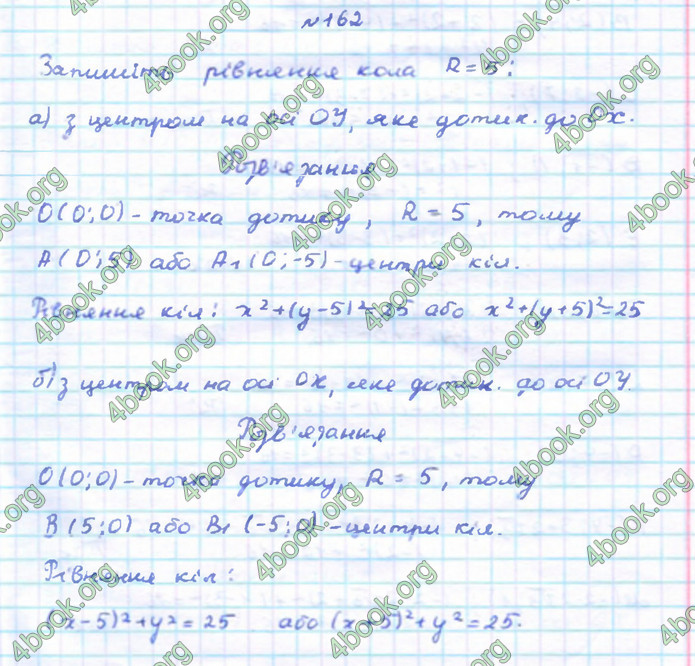 №162
Запишіть рівняння кола R=5:
а) з центром на осі ОУ, яке дотик. до ОХ.
Розв'язання
O(0;0) - точка дотику, R = 5, тому
A(0;5) або A₁(0;-5) - центри кіл.
Рівняння кіл: x²+(y-5)²=25 або x²+(y+5)²=25
б) з центром на осі ОХ, яке дотик. до осі ОУ.
Розв'язання
O(0;0) - точка дотику, R = 5, тому
B(5;0) або B₁(-5;0) - центри кіл.
Рівняння кіл:
(x-5)²+y²=25 або (x+5)²+y²=25.
4book.org